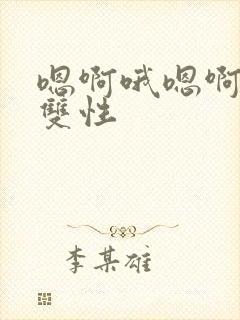 嗯啊哦嗯啊
雙性
李某雄